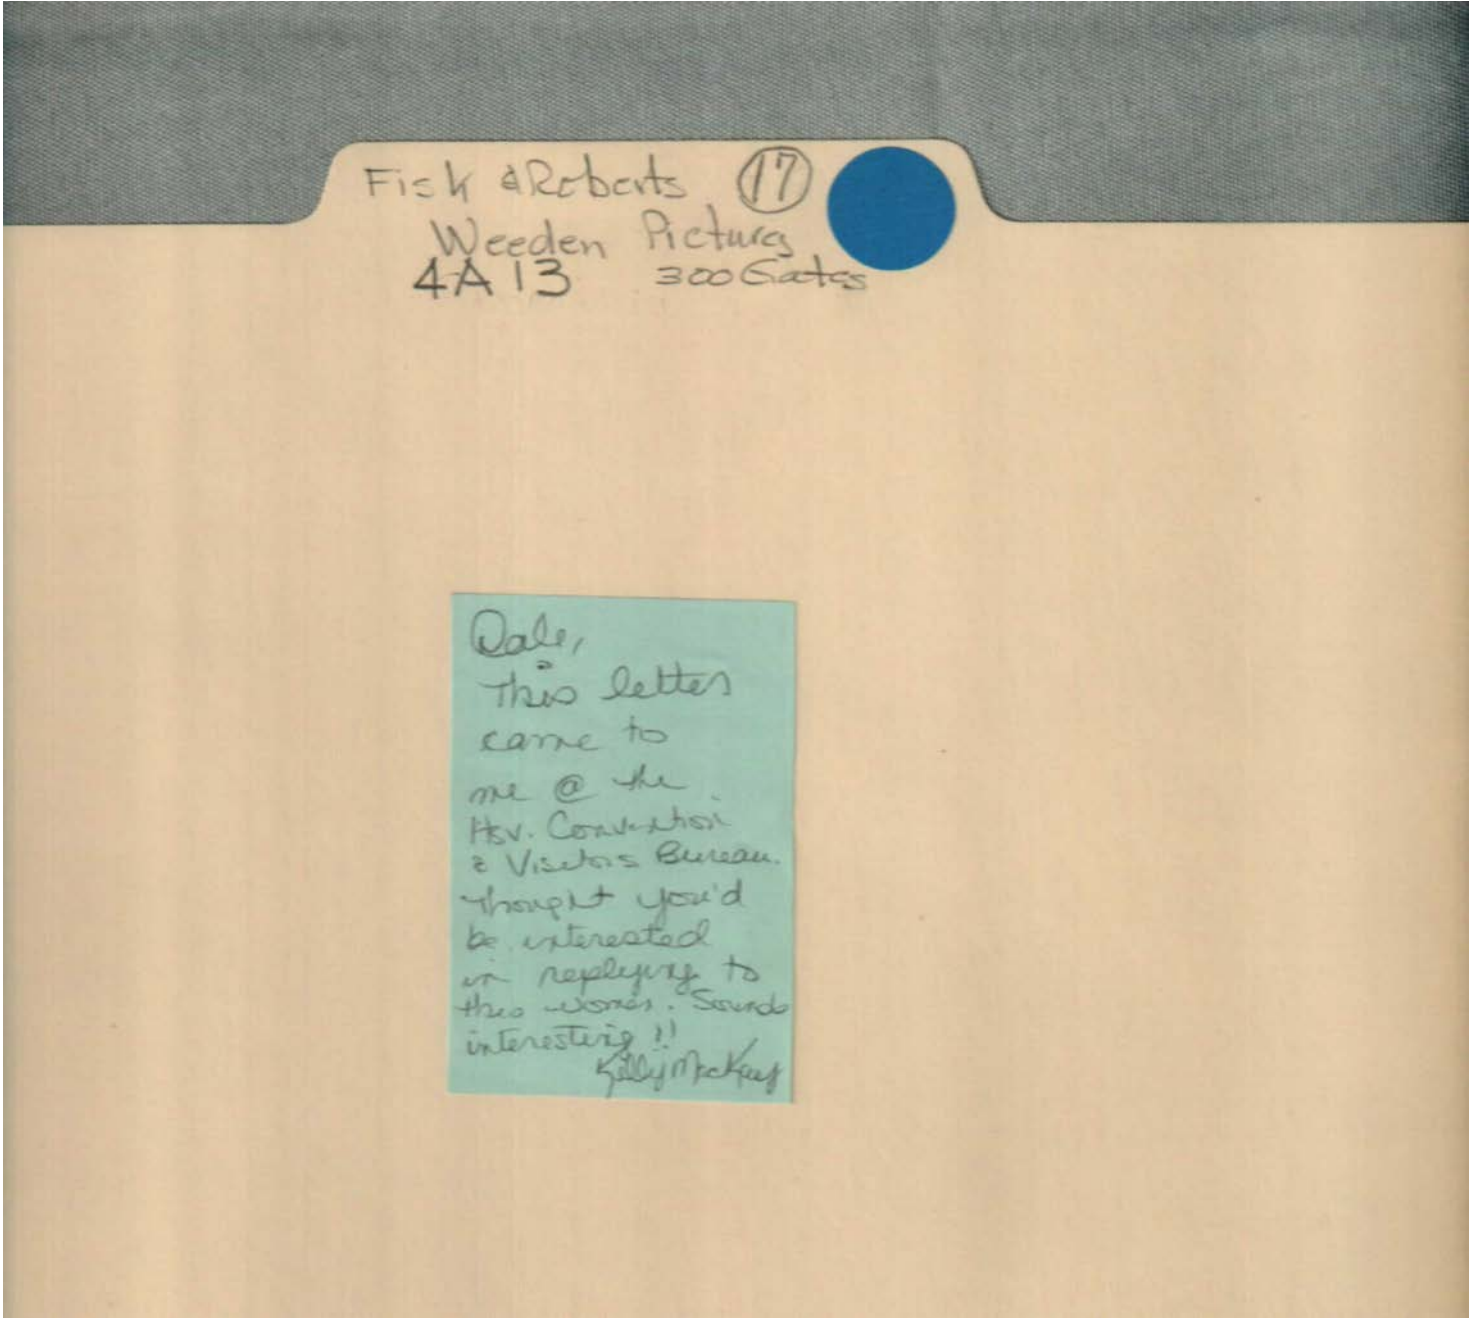 Fisk & Roberts 17
Weeden Pictures
4A13 300 Gates
Dale,
This letter
came to
me @ the
Hsv. Convention
& Visitors Bureau.
Thought you'd
be interested
in replying to
this woman. Sounds
interesting!!
Kelly MacKay